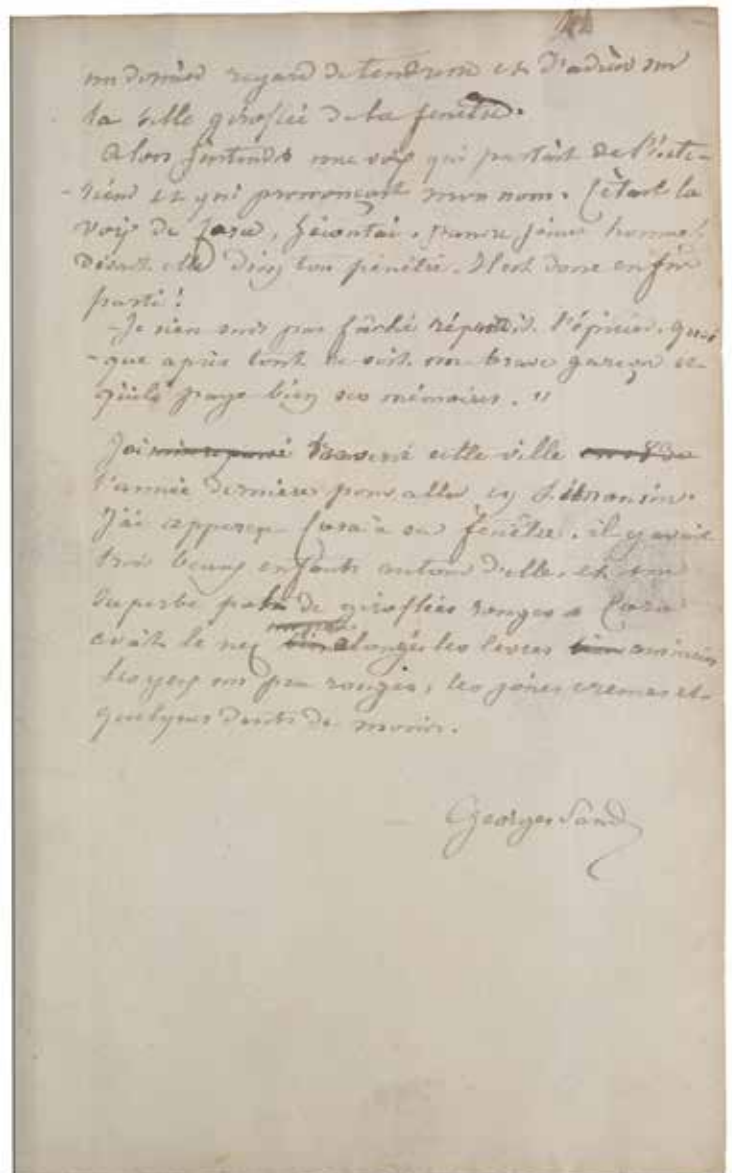 un dernier regard de tendresse et d'adieu sur
la belle giroflée de la fenêtre.
Alors j'entendis une voix qui partait de l'inté-
-rieur et qui prononçait mon nom. C'était la
voix de Cora, j'écoutai. Pauvre jeune homme!
disait elle d'un ton pénétré. Il est donc enfin
parti!
-Je n'en suis pas fâché répondit l'épicier. quoi
-que après tout ce soit un brave garçon et
qu'il paye bien ses mémoires. "
J'ai traversé cette ville
l'année dernière pour aller en Limousin.
J'ai apperçu Cora à sa fenêtre. il y avait
trois beaux enfants autour d'elle, et un
superbe pot de giroflées rouges. Cora
avait le nez alongé, les lèvres amincies
les yeux un peu rouges, les joues creuses et
quelques dents de moins.
Georges Sand